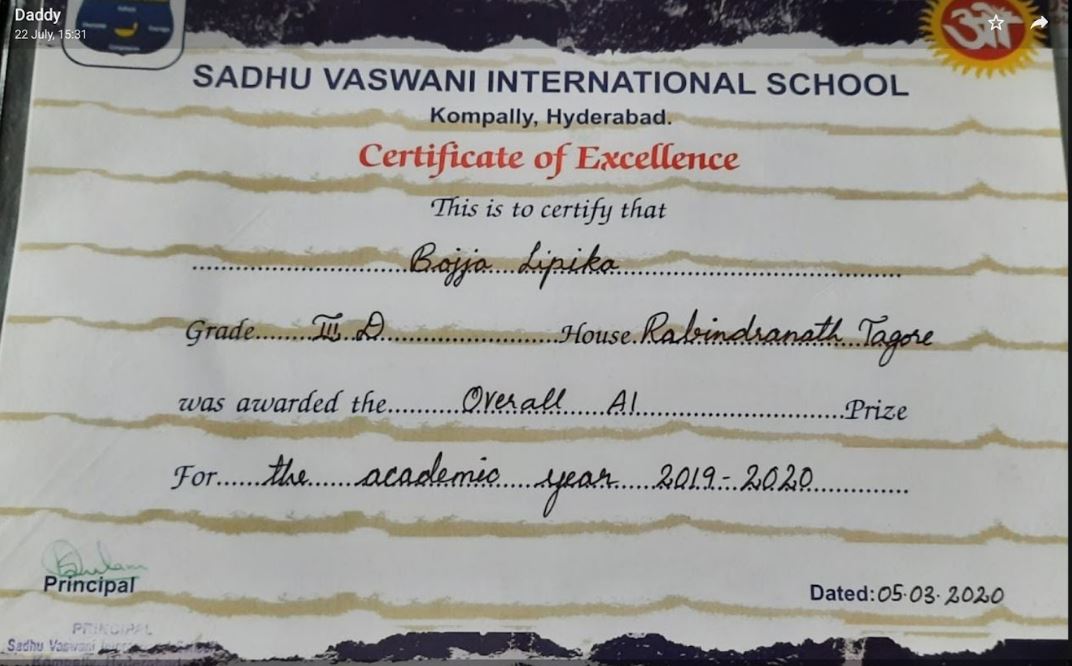 Daddy
22 July, 15:31
SADHU VASWANI INTERNATIONAL SCHOOL
Kompally, Hyderabad.
Certificate of Excellence
This is to certify that
Bojja Lipika
Grade III D House Rabindranath Tagore
was awarded the Overall A1 Prize
For the academic year 2019-2020
Principal
Dated: 05.03.2020
PRINCIPAL
Sadhu Vaswani